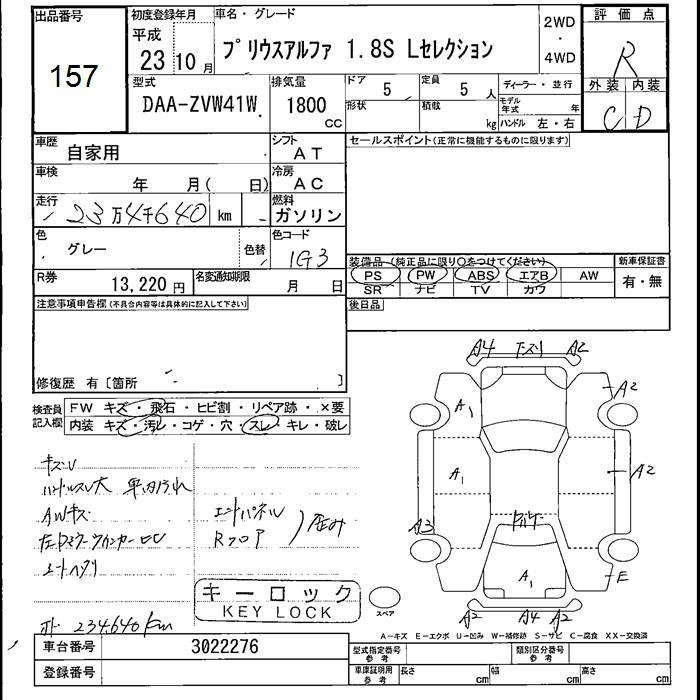 出品番号 157
初度登録年月 平成 23 10月
車名・グレード プリウスアルファ 1.8S Lセレクション
2WD・4WD
評価点 R
外装 内装
C D
型式 DAA-ZVW41W
排気量 1800 CC
ドア 5
定員 5 人
形状
積載 kg
ディーラー・並行
モデル年式 年
ハンドル 左・右
車歴 自家用
シフト AT
セールスポイント(正常に機能するものに限ります)
車検 年 月( 日)
冷房 AC
走行 23万4千640 km
燃料 ガソリン
色 グレー
色替
色コード 1G3
装備品 (純正品に限り○をつけてください)
PS PW ABS エアB AW
SR ナビ TV カワ
新車保証書 有・無
R券 13,220 円
名変通知期限 月 日
後日品
注意事項申告欄(不具合内容等は具体的に記入して下さい)
修復歴 有〔箇所 〕
検査員記入欄
FW キズ・飛石・ヒビ割・リペア跡・×要
内装 キズ・汚レ・コゲ・穴・スレ・キレ・破レ
A4 A2
A1 A2
A1 A2
A3
A1 E
A2 A4 A2
ハンドルスレ大 車内汚れ
AWキズ
エンドパネル
Rフロア
歪み
シートヘタリ
キーロック
KEY LOCK
スペア
234,640km
A−キズ E−エクボ U−凹み W−補修跡 S−サビ C−腐食 XX−交換済
車台番号 3022276
登録番号
型式指定番号 参考
類別区分番号 参考
車庫証明用 参考 長さ cm 幅 cm 高さ cm